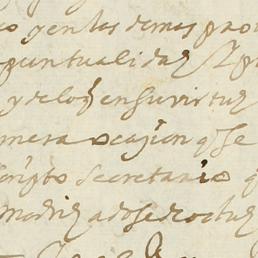 o y en las demas prov
puntualidad
y de los en su virtud
mera ocasion q se
cripto secretario q
madrid a dose de octu